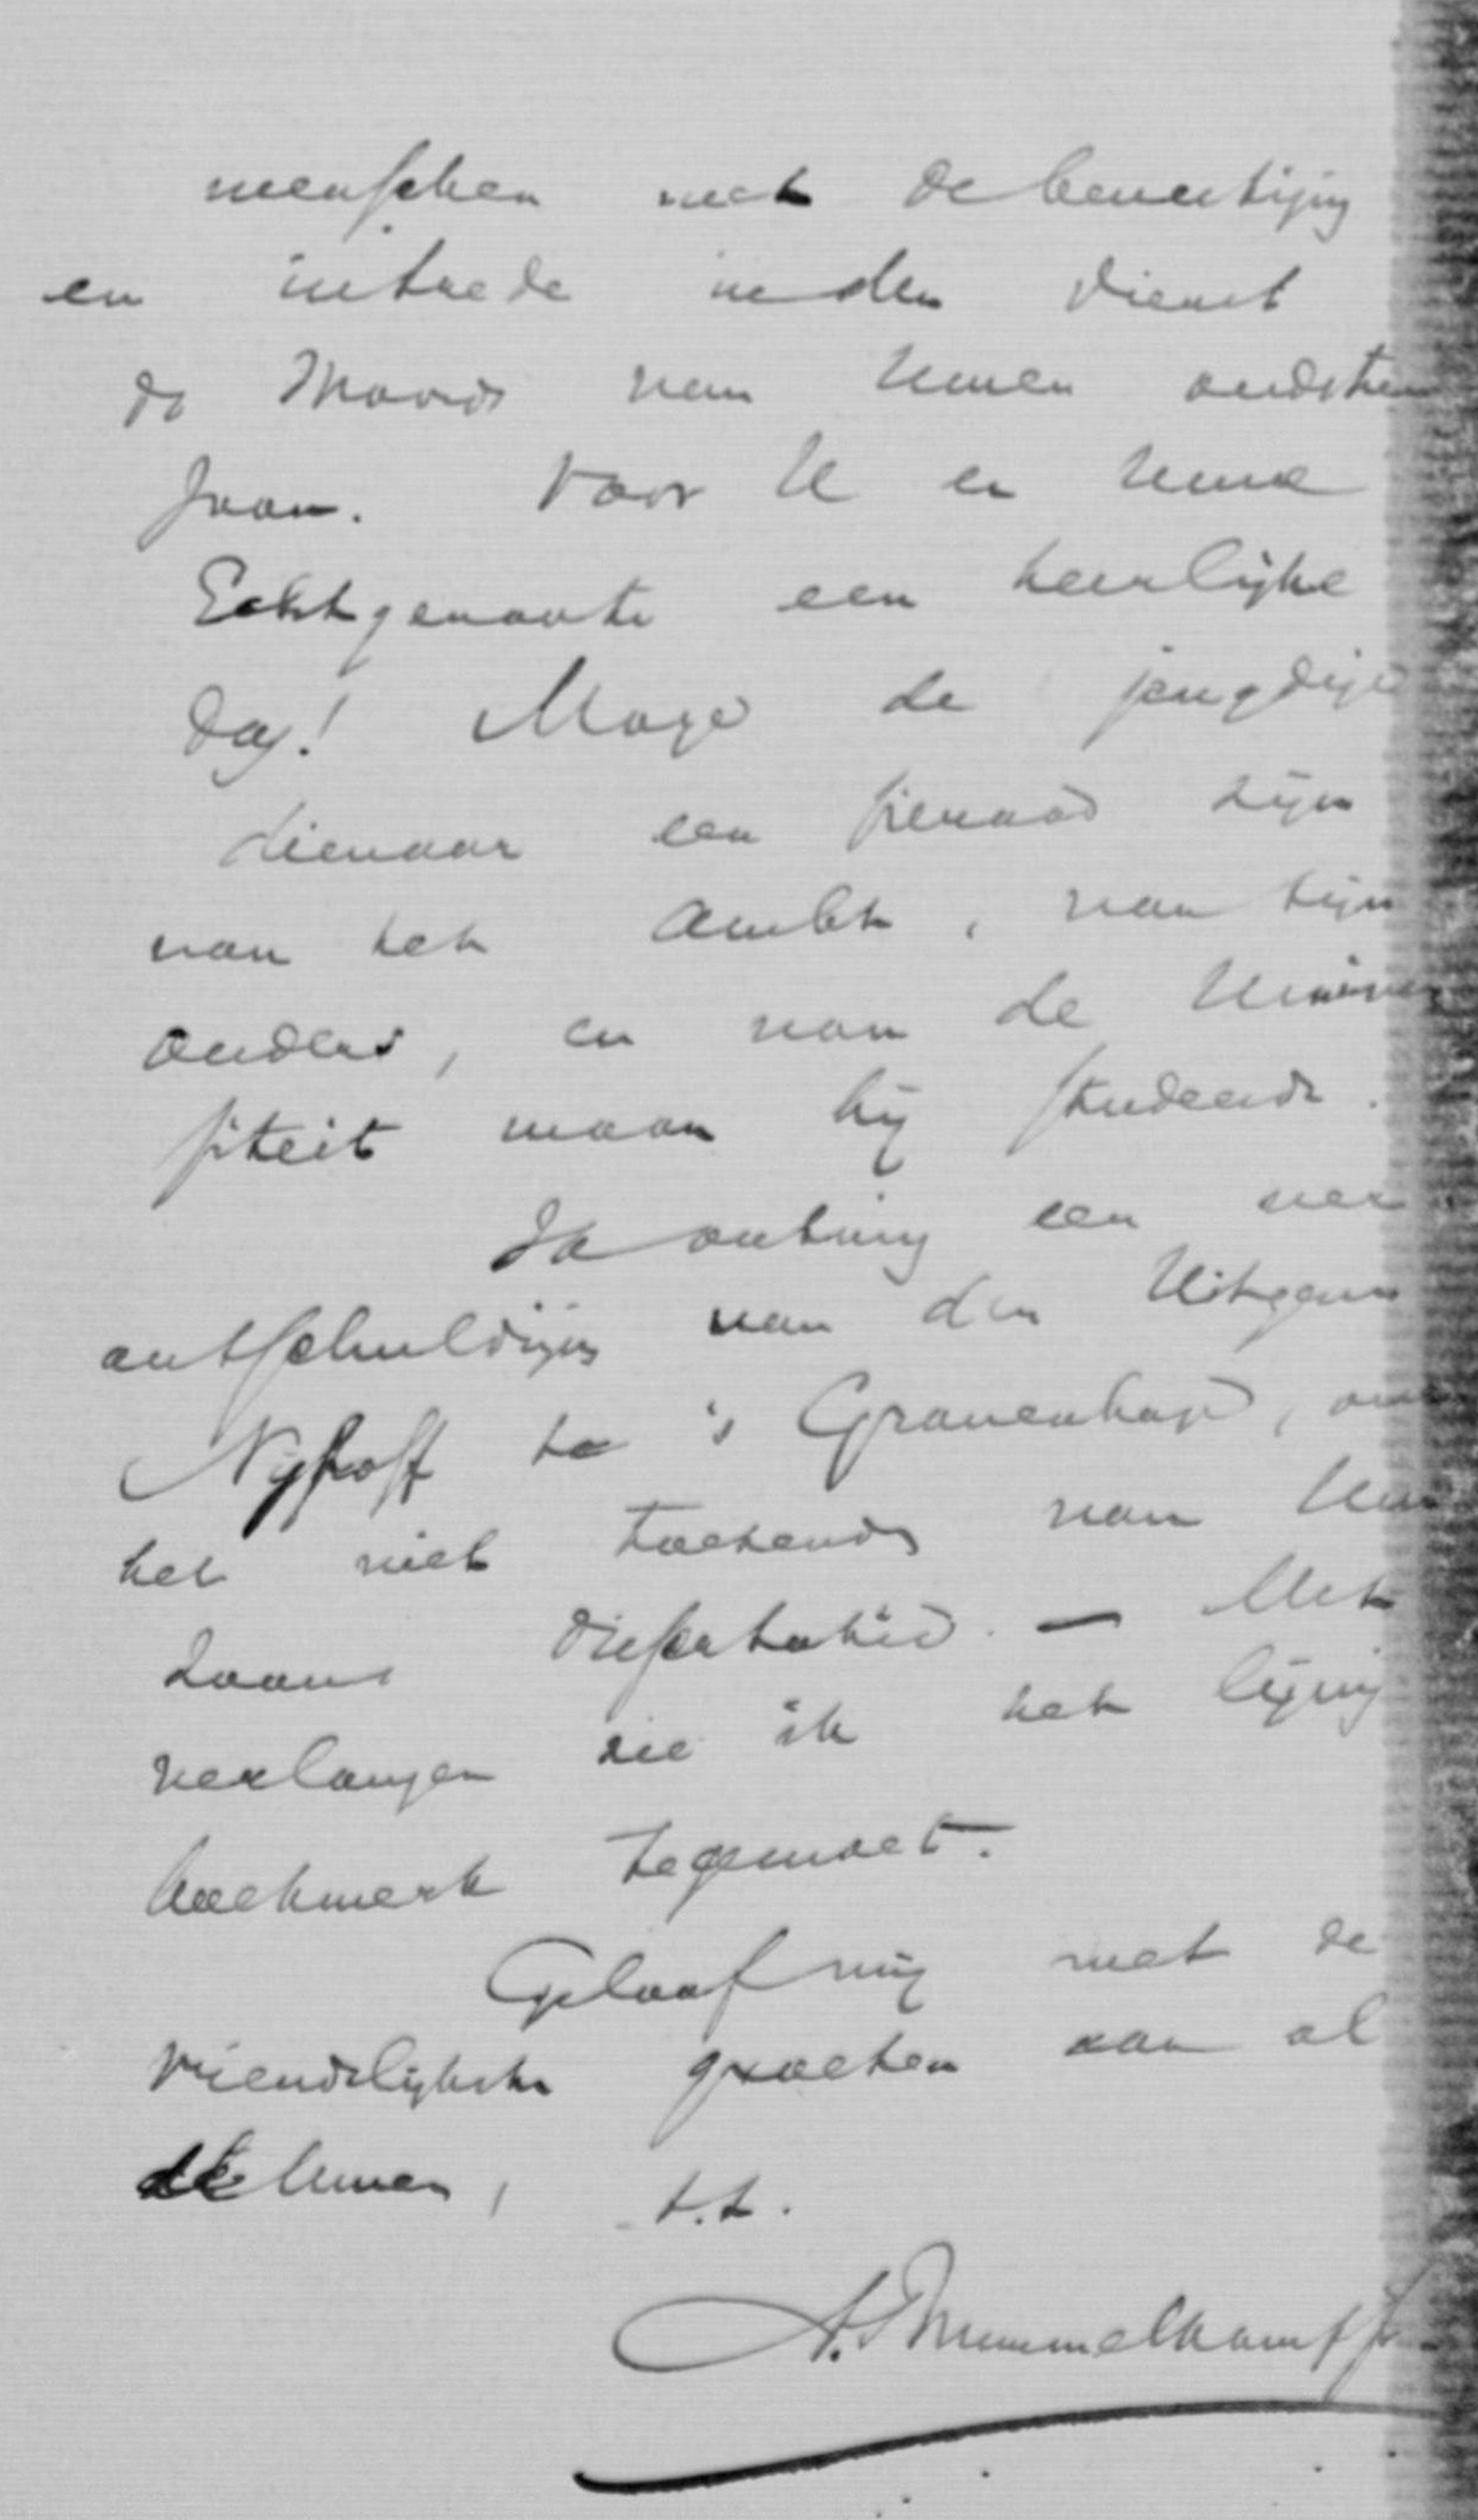 menschen met de bevestiging
en intrede in den dienst
des Woords van Uwen oudsten
zoon. Voor U en Uwe
Echtgenoote een heerlijke
dag! Moge de jeugdige
dienaar een sieraad zijn
van het ambt, van zijn
ouders, en van de Univer
siteit waar hij studeerde.
Ik ontving een ver
ontschuldiging van den Uitgever
Nyhoff te 's Gravenhage, over
het niet toezenden van Uw
zoons dissertatie. — Met
verlangen zie ik het lijvig
boekwerk tegemoet.
Geloof mij met de
vriendelijkste groeten aan al
de Uwen, t.t.
A. Brummelkamp Jr